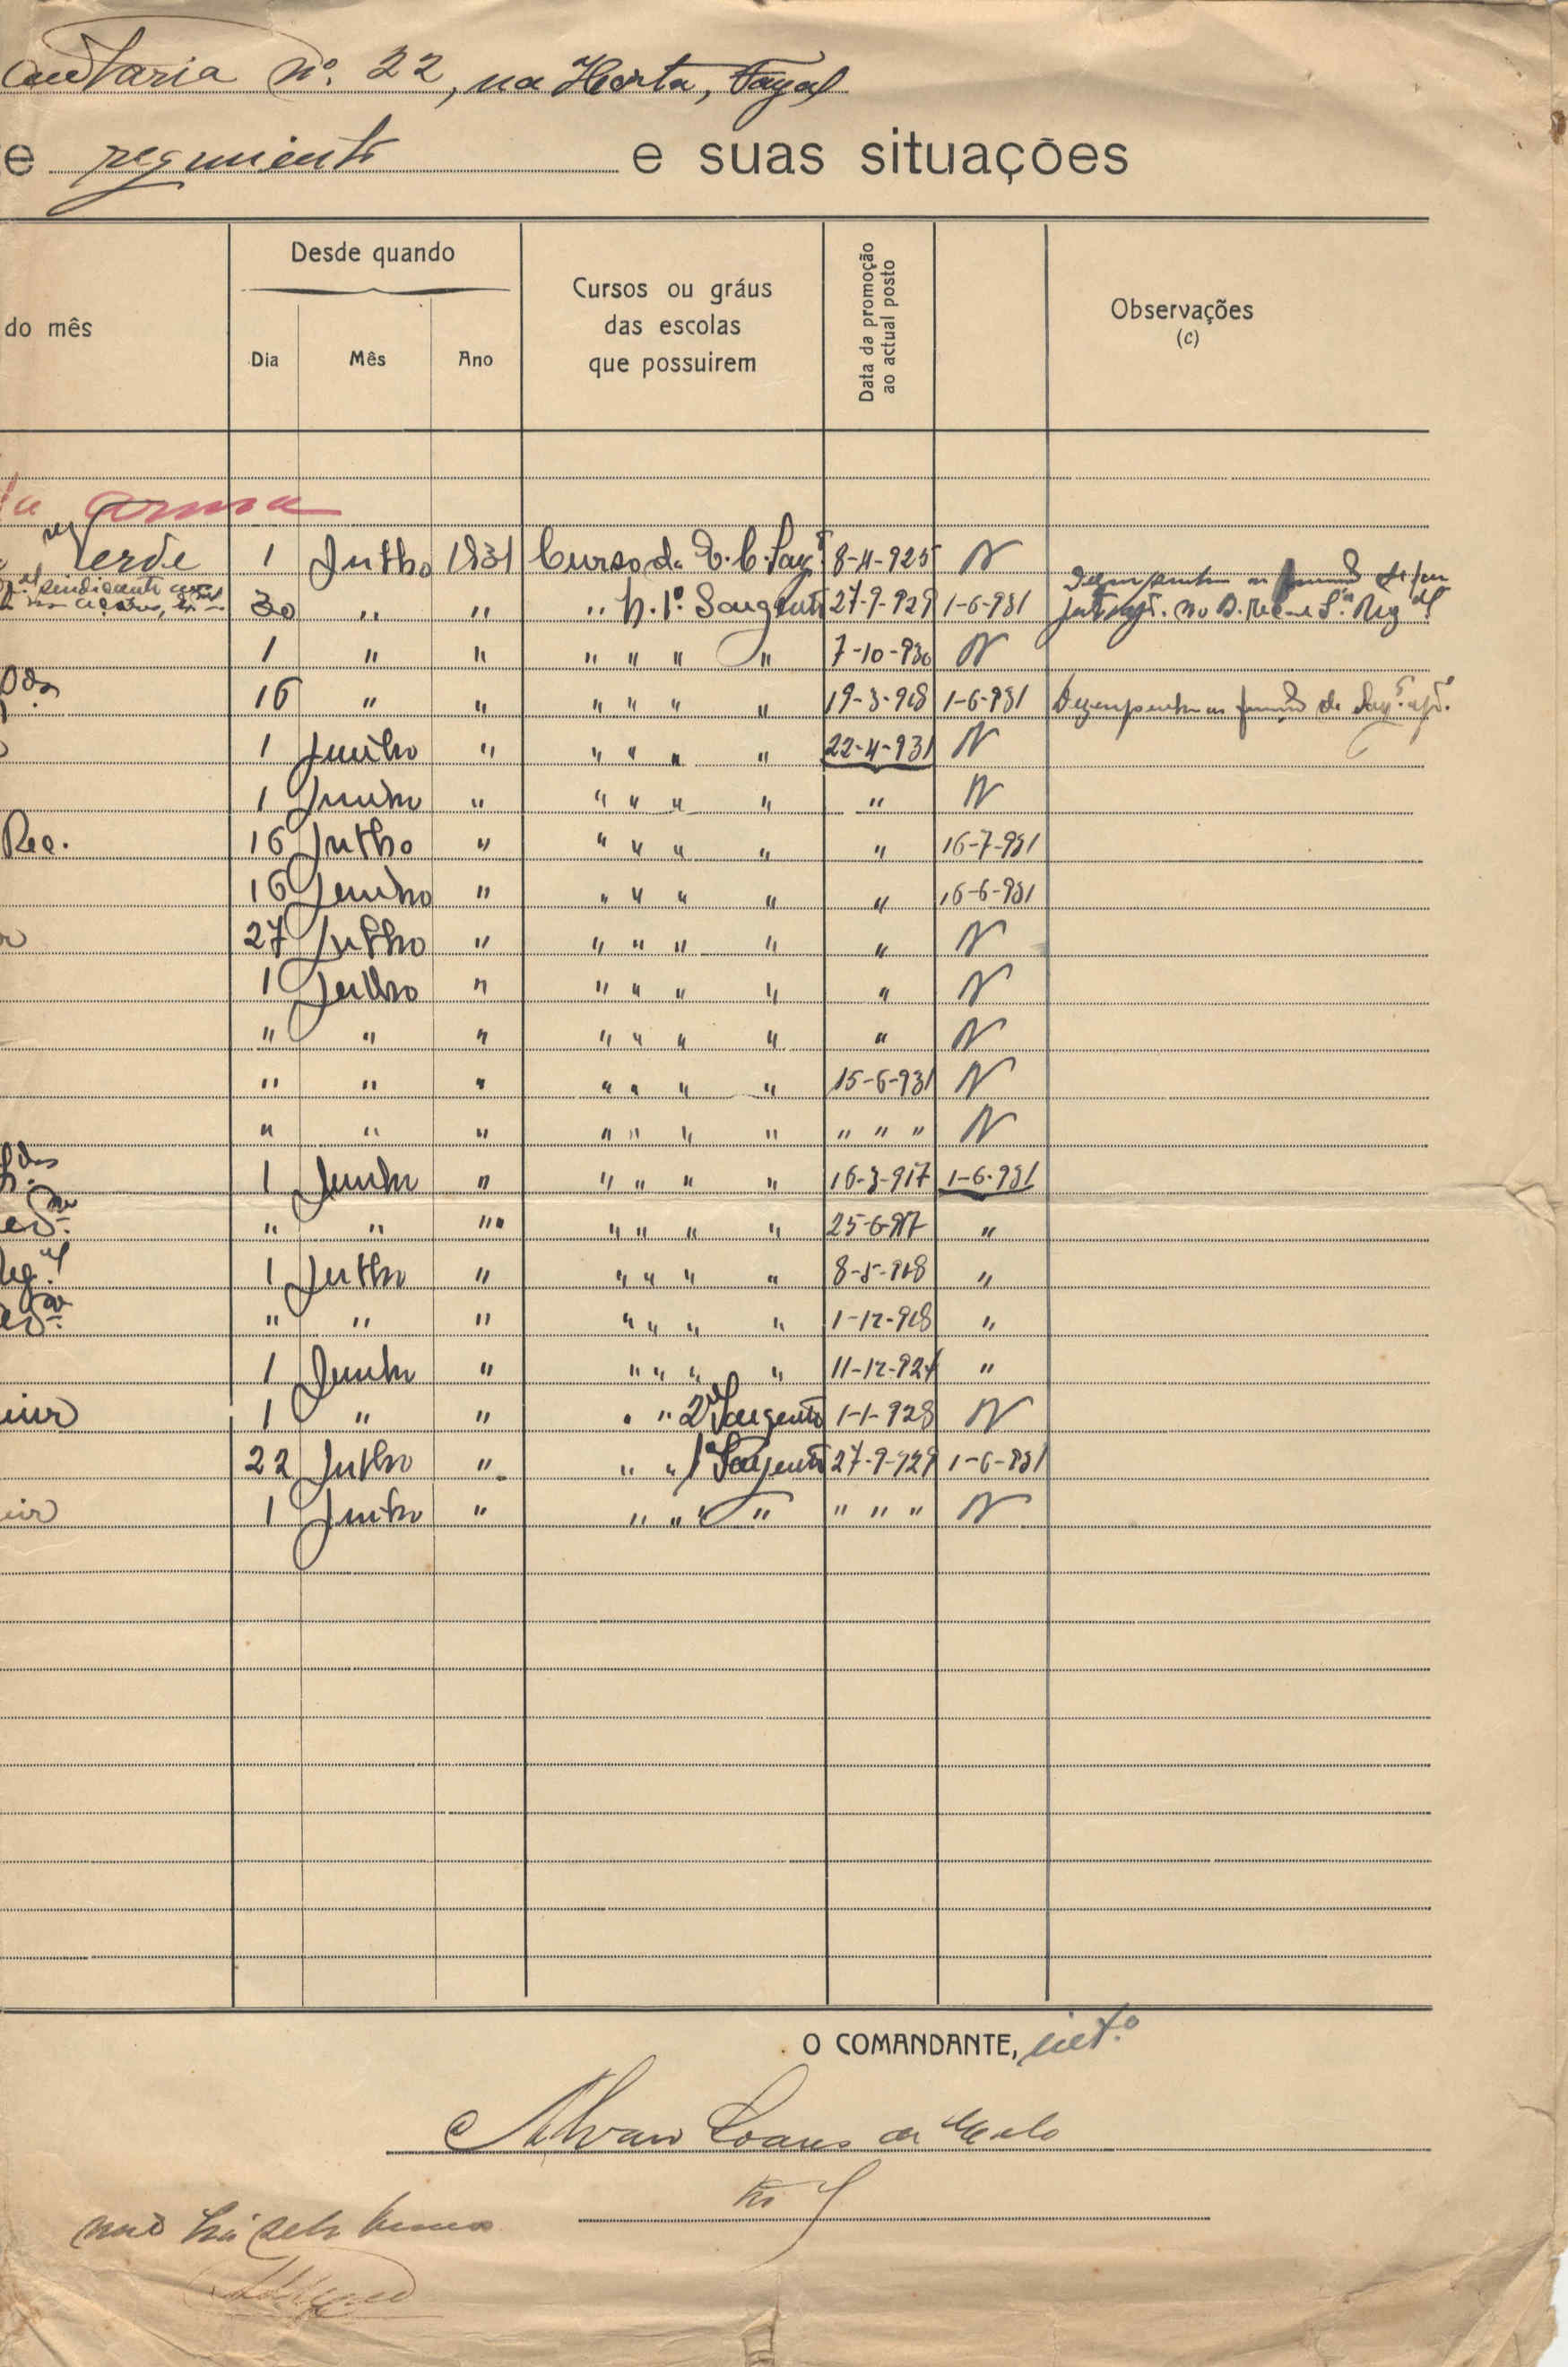 antaria nº. 22, na Horta, Fayal
e regimento e suas situações
do mês
Desde quando
Dia Mês Ano
Cursos ou gráus
das escolas
que possuirem
Data da promoção
ao actual posto
Observações
(c)
arma
Verde 1 Julho 1931 Curso da E. C. Sarg. 8-4-925 N
30 " " " h. 1º. Sargento 27-9-929 1-6-931
1 " " " " " " 7-10-930 N
16 " " " " " " 19-3-918 1-6-931 Dezempenha as de Sarg.
1 Junho " " " " " 22-4-931 N
1 Junho " " " " " " N
Rec. 16 Julho " " " " " " 16-7-931
16 Junho " " " " " " 16-6-931
27 Julho " " " " " " N
1 Julho " " " " " " N
" " " " " " " " N
" " " " " " " 15-6-931 N
" " " " " " " " " " N
1 Junho " " " " " 16-3-917 1-6-931
" " " " " " " 25-6-917 "
1 Julho " " " " " 8-5-918 "
" " " " " " " 1-12-918 "
1 Junho " " " " " 11-12-924 "
1 " " " " 2º Sargento 1-1-928 N
22 Julho " " " 1º Sargento 27-9-929 1-6-931
1 Junho " " " " " " " " N
O COMANDANTE, intº
Alvaro Soares de Melo
não há selo branco